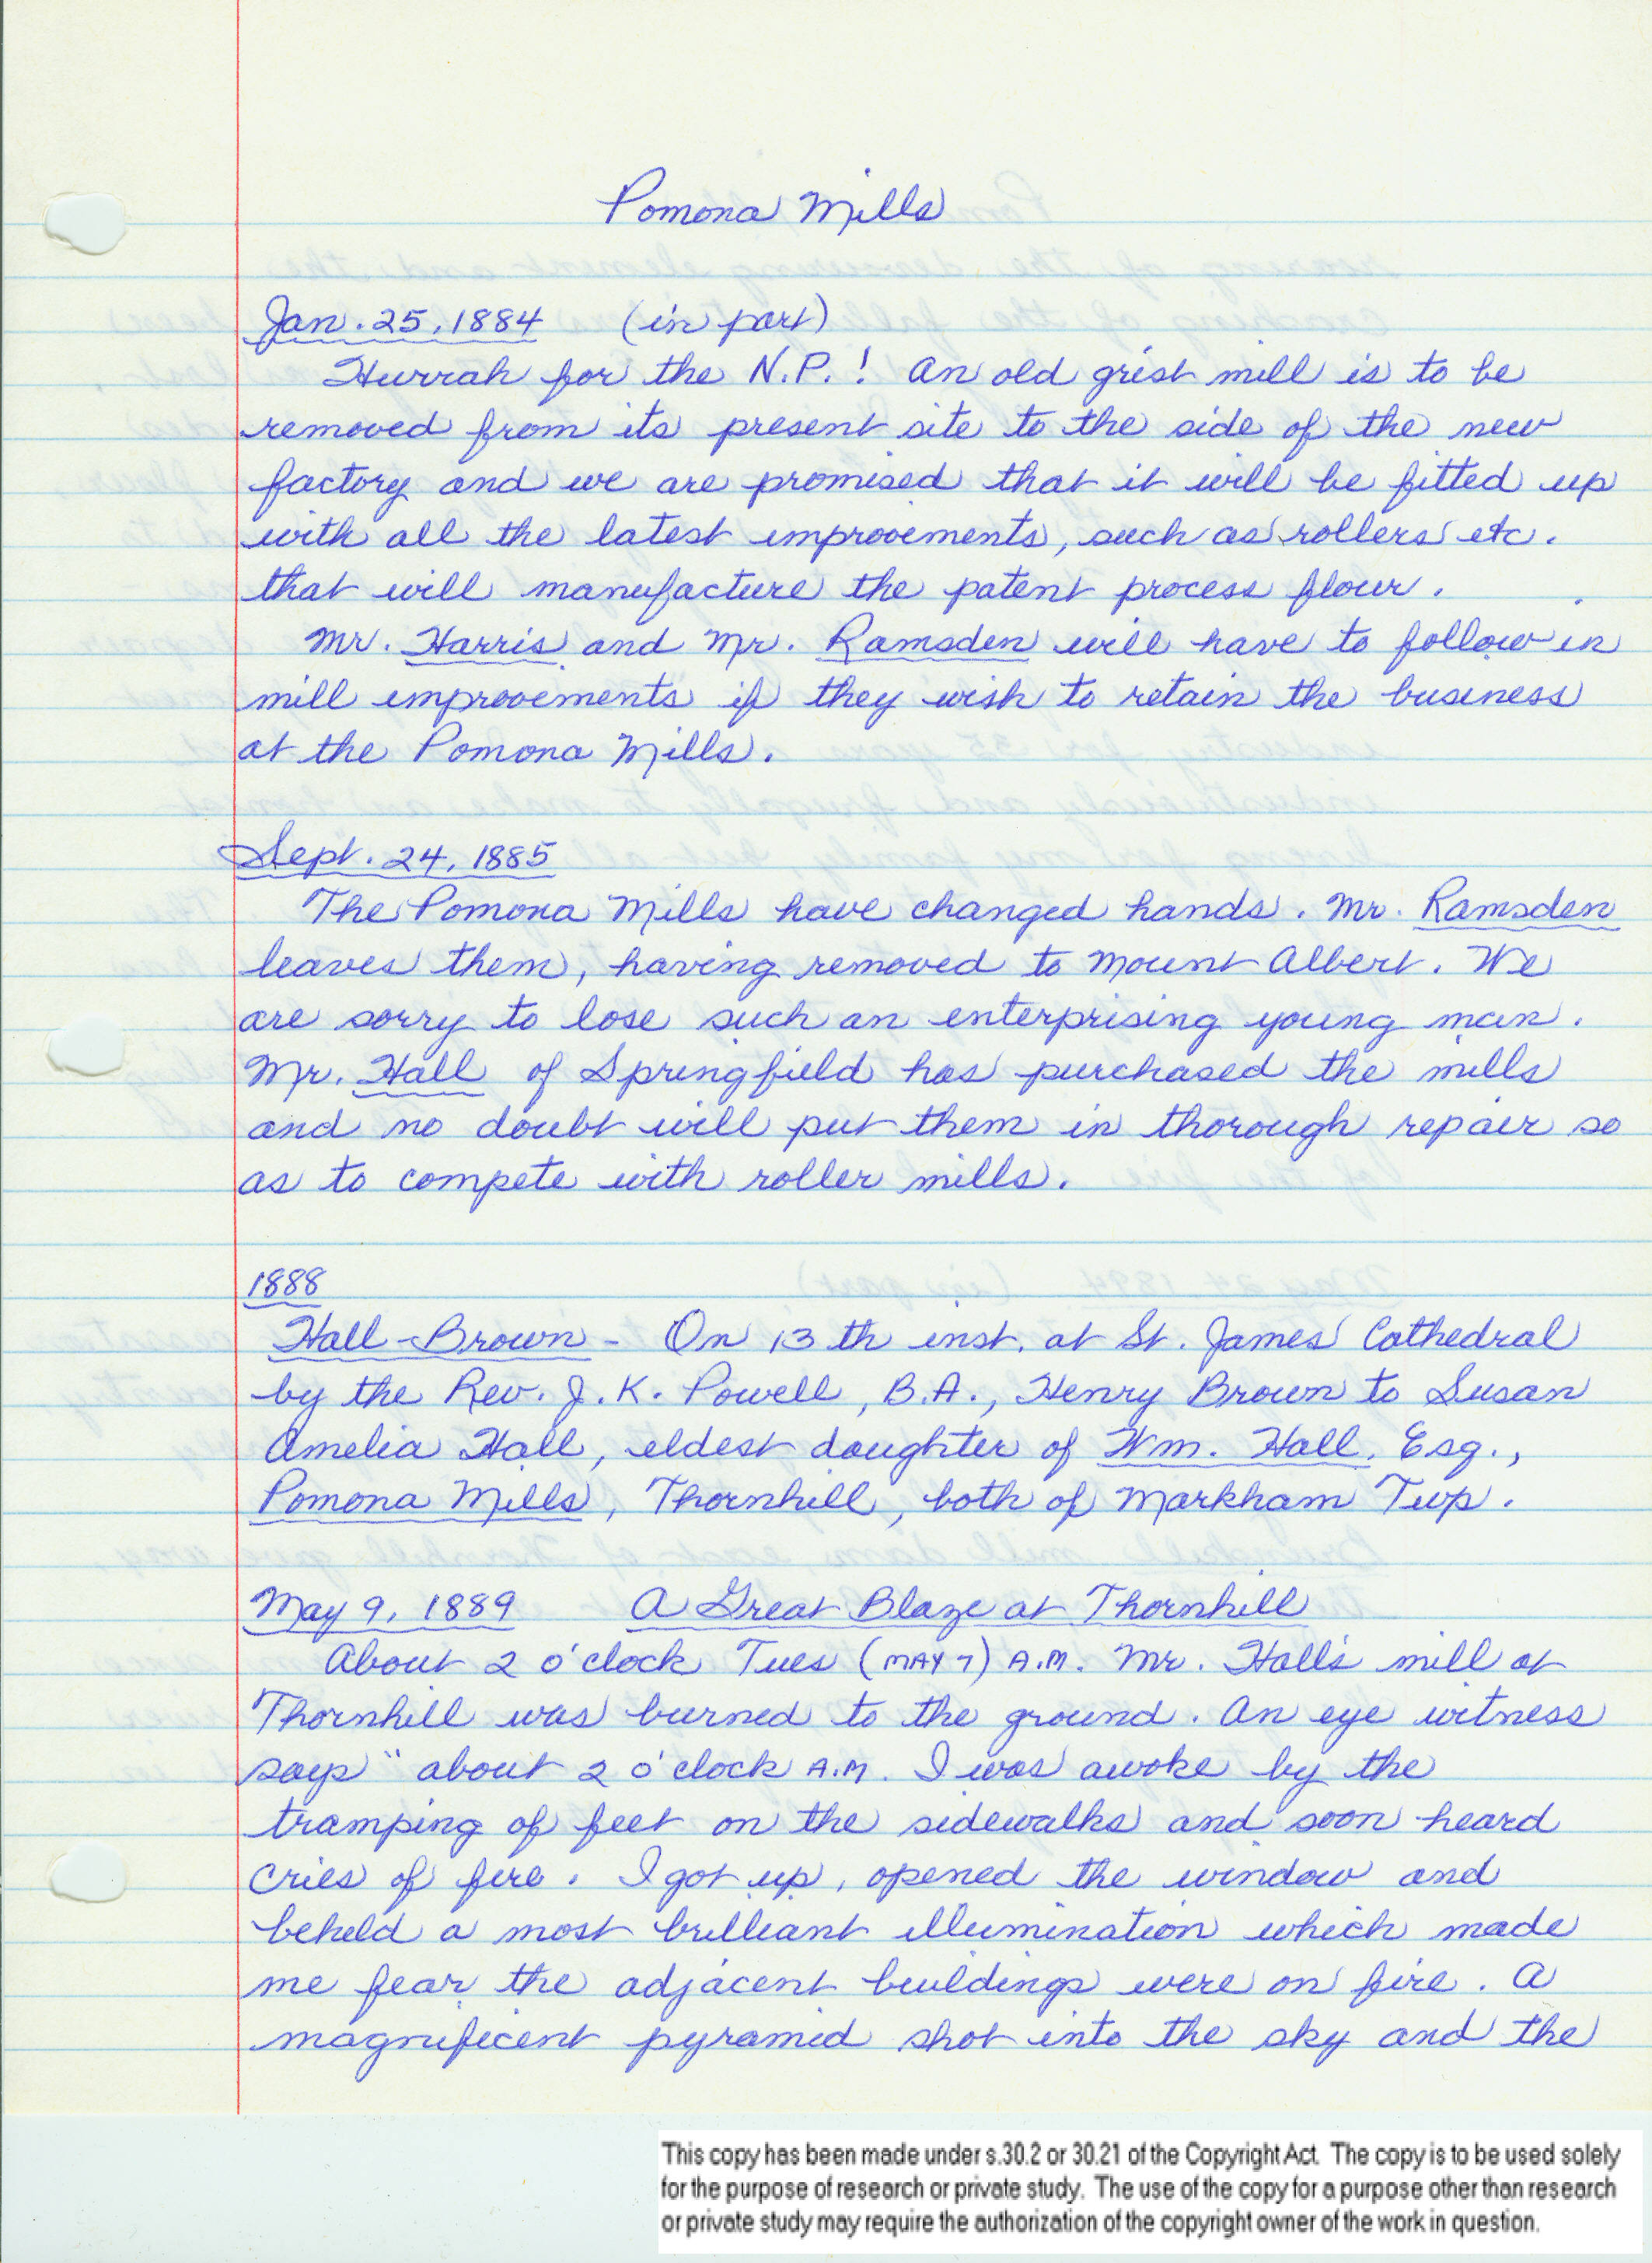 Pomona Mills
Jan. 25, 1884 (in part)
Hurrah for the N.P.! An old grist mill is to be
removed from its present site to the side of the new
factory and we are promised that it will be fitted up
with all the latest improvements, such as rollers etc.
that will manufacture the patent process flour.
Mr. Harris and Mr. Ramsden will have to follow in
mill improvements if they wish to retain the business
at the Pomona Mills.
Sept. 24, 1885
The Pomona Mills have changed hands. Mr. Ramsden
leaves them, having removed to Mount Albert. We
are sorry to lose such an enterprising young man.
Mr. Hall of Springfield has purchased the mills
and no doubt will put them in thorough repair so
as to compete with roller mills.
1888
Hall-Brown - On 13th inst. at St. James Cathedral
by the Rev. J.K. Powell, B.A., Henry Brown to Susan
Amelia Hall, eldest daughter of Wm. Hall, Esq.,
Pomona Mills, Thornhill, both of Markham Twp.
May 9, 1889 A Great Blaze at Thornhill
About 2 o'clock Tues (MAY 7) A.M. Mr. Hall's mill at
Thornhill was burned to the ground. An eye witness
says "about 2 o'clock A.M. I was awoke by the
tramping of feet on the sidewalks and soon heard
cries of fire. I got up, opened the window and
beheld a most brilliant illumination which made
me fear the adjacent buildings were on fire. A
magnificent pyramid shot into the sky and the
This copy has been made under s.30.2 or 30.21 of the Copyright Act. The copy is to be used solely
for the purpose of research or private study. The use of the copy for a purpose other than research
or private study may require the authorization of the copyright owner of the work in question.